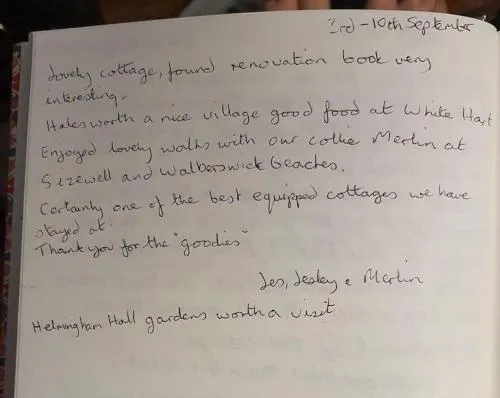 3rd - 10th September
Lovely cottage, found renovation book very
interesting.
Halesworth a nice village good food at White Hart
Enjoyed lovely walks with our collie Merlin at
Sizewell and Walberswick beaches.
Certainly one of the best equipped cottages we have
stayed at.
Thank you for the "goodies"
Les, Lesley & Merlin
Helmingham Hall gardens worth a visit